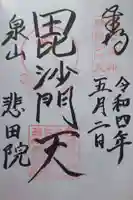 奉拝
令和四年
五月二日
毘沙門天
泉山
悲田院